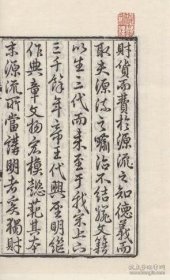 財貨而費於源流之知德義而
取夫源流之嘀治不結婉文籍
以生三代而來至于我宗上六
三千餘年帝王代興聖明繼
作典章文物宏模懿範其本
末源流所當講明者奚獨財